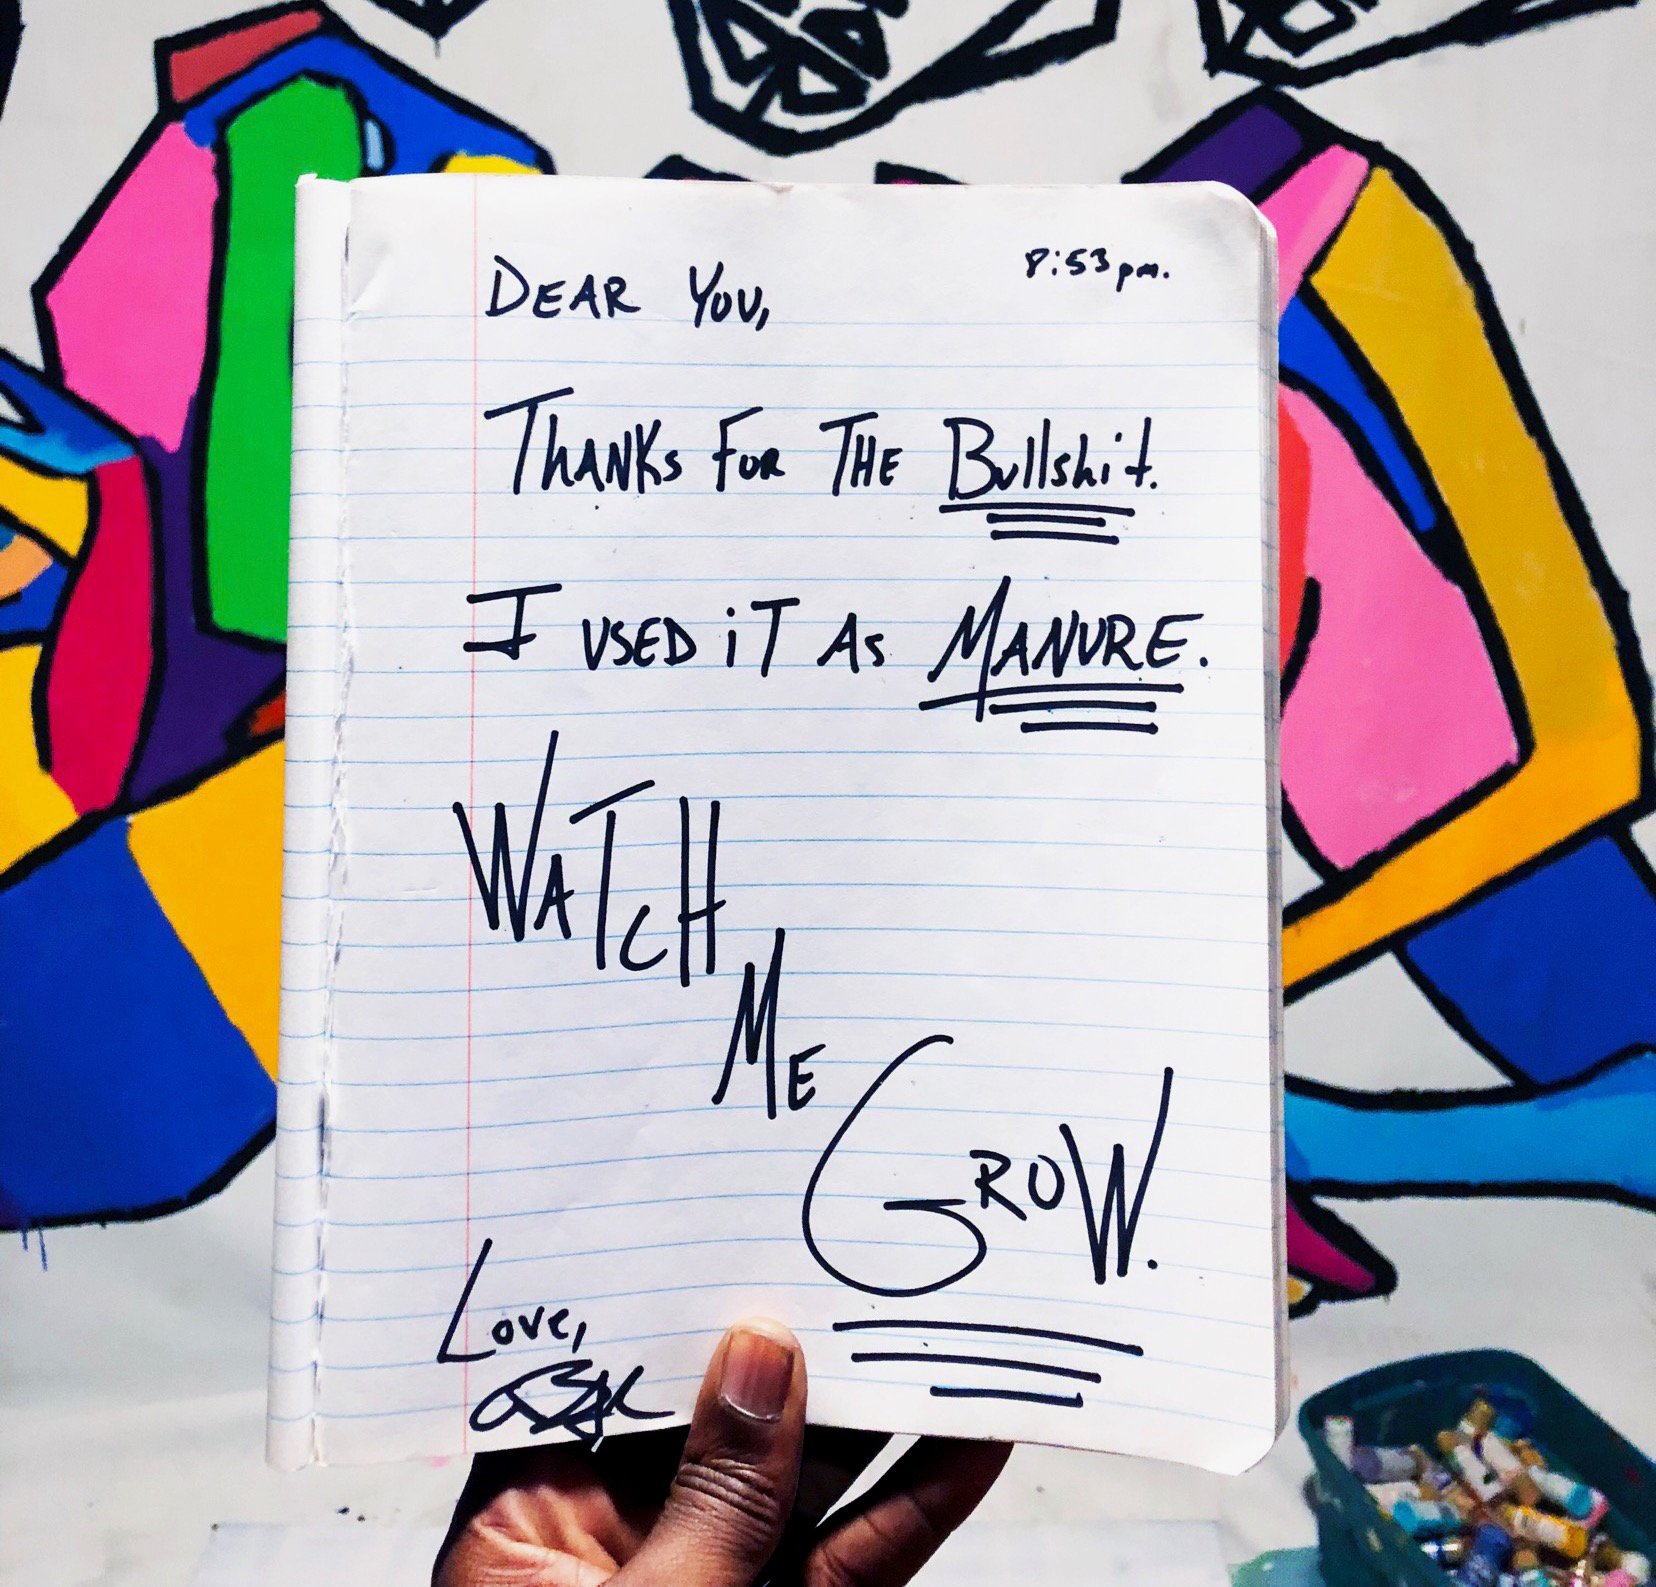 8:53pm.
DEAR YOU,
THANKS FOR THE Bullshit.
I USED iT AS MANURE.
WATCH
ME
GROW.
Love,